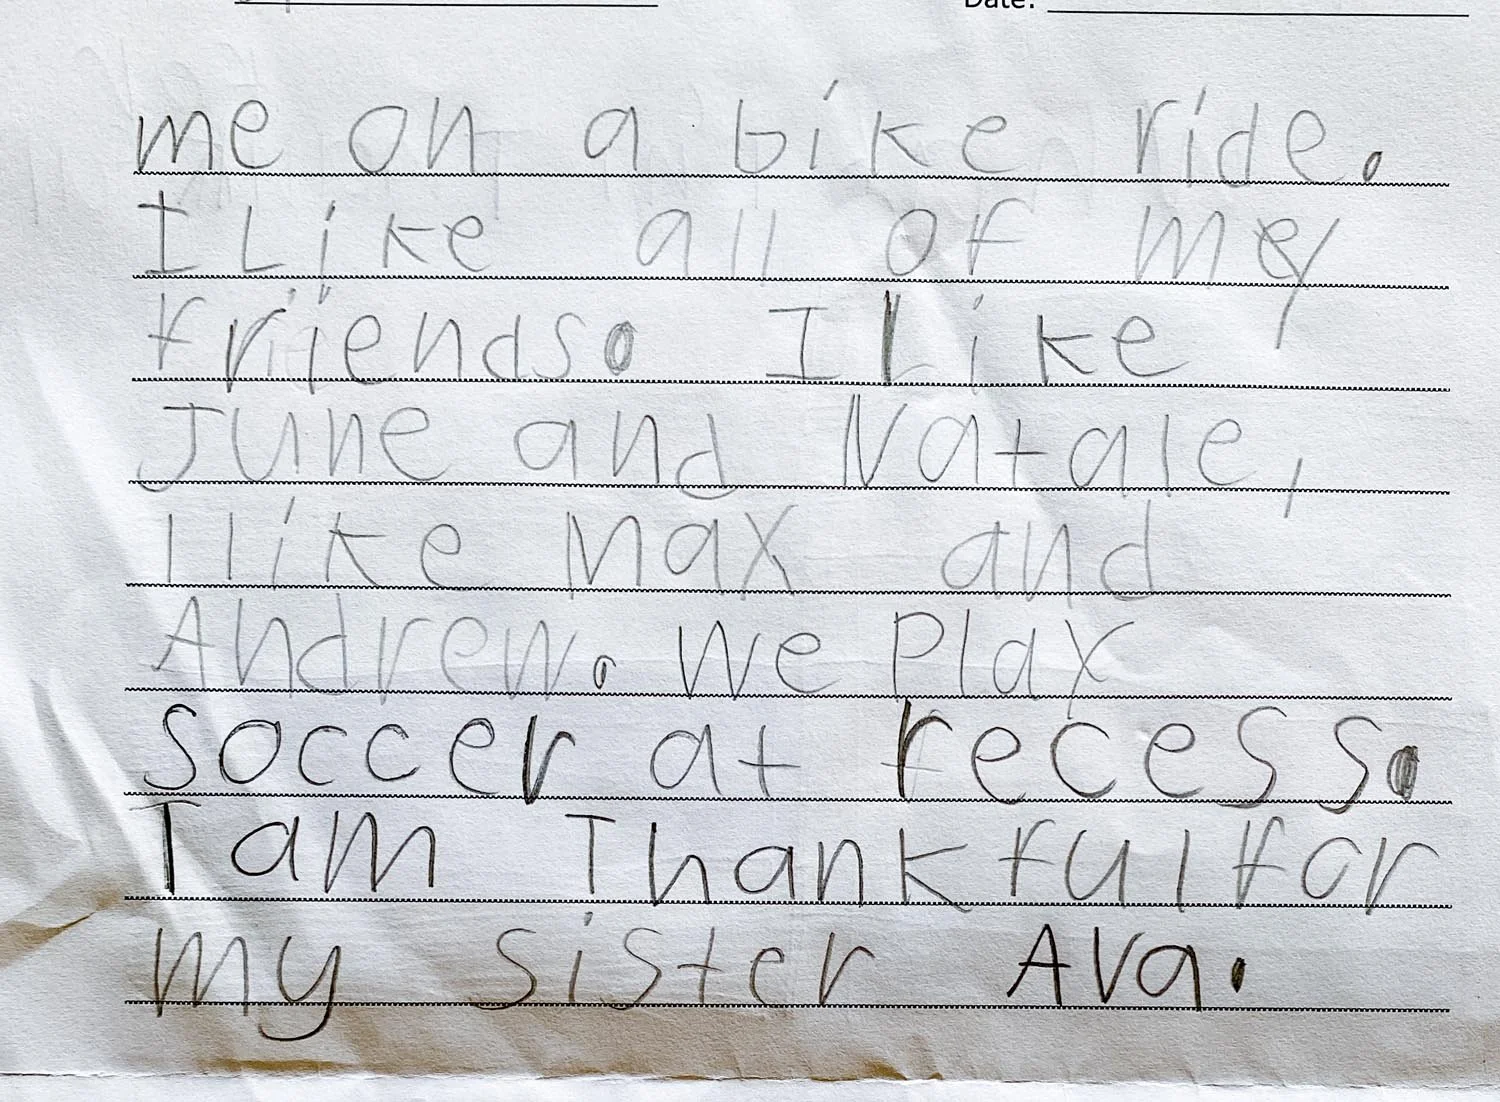 Date:
me on a bike ride.
I Like all of my
friends. I like
June and Natale,
I like Max and
Andrew. We Play
soccer at recess.
I am Thankful for
my sister Ava.